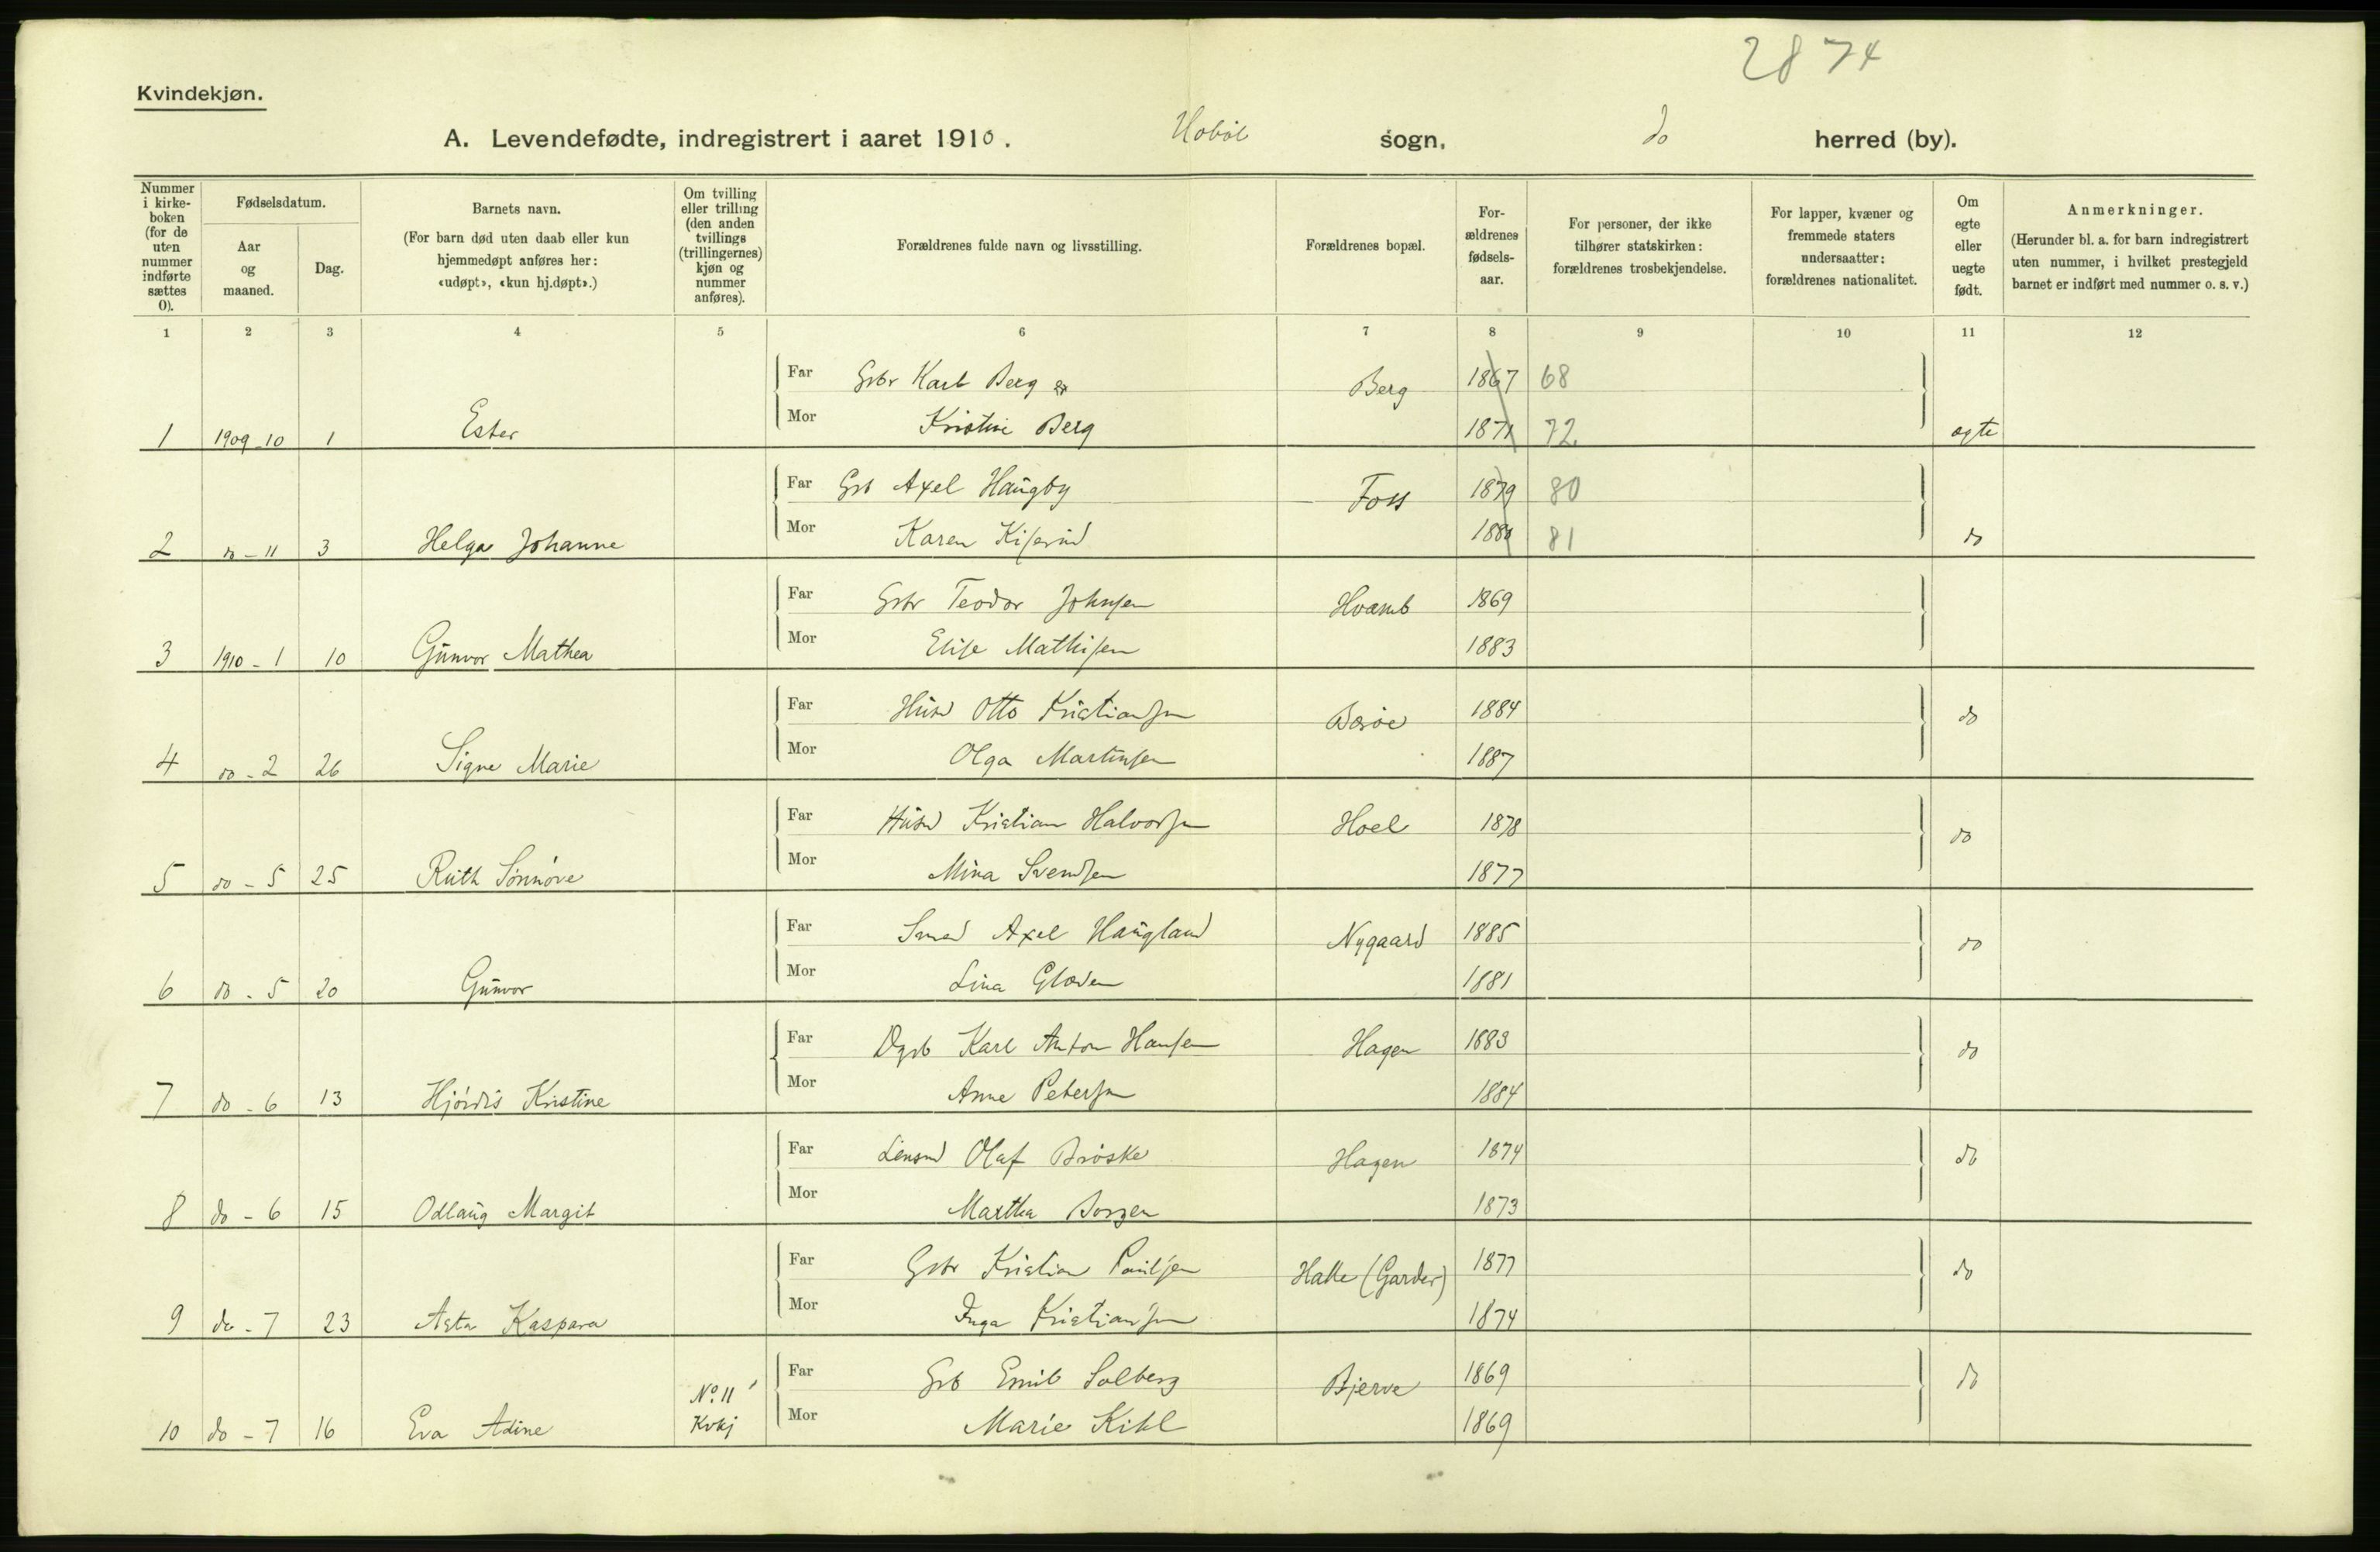 2874
Kvindekjøn.
A. Levendefødte, indregistrert i aaret 1910. Hobøl sogn, do herred (by).
Nummer i kirke-boken (for de uten nummer indførte sættes 0).
Fødselsdatum.
Aar og maaned.
Dag.
Barnets navn.
(For barn død uten daab eller kun hjemmedøpt anføres her: «udøpt», «kun hj.døpt».)
Om tvilling eller trilling (den anden tvillings (trillingernes) kjøn og nummer anføres).
Forældrenes fulde navn og livsstilling.
Forældrenes bopæl.
For-ældrenes fødsels-aar.
For personer, der ikke tilhører statskirken: forældrenes trosbekjendelse.
For lapper, kvæner og fremmede staters undersaatter: forældrenes nationalitet.
Om egte eller uegte født.
Anmerkninger.
(Herunder bl. a. for barn indregistrert uten nummer, i hvilket prestegjeld barnet er indført med nummer o. s. v.)
1 2 3 4 5 6 7 8 9 10 11 12
Far Gbr Karl Berg Berg 1867 68
1 1909-10 1 Ester Mor Kristine Berg 1871 72 egte
Far Gb Axel Haugby Foss 1879 80
2 do-11 3 Helga Johanne Mor Karen 1880 81 do
Far Gbr Teodor Johnsen Hvamb 1869
3 1910-1 10 Gunvor Mathea Mor Elise Mathisen 1883
Far Husm Otto Kristiansen 1884 do
4 do-2 26 Signe Marie Mor Olga Martinsen 1887
Far Husm Kristian Halvorsen Hoel 1878 do
5 do-5 25 Ruth Sønnøve Mor Mina Svendsen 1877
Far Smed Axel Haugland Nygaard 1885 do
6 do-5 20 Gunvor Mor Lina 1881
Far Dgrb Karl Anton Hansen Hagen 1883 do
7 do-6 13 Hjørdis Kristine Mor Anne Petersen 1884
Far Lensm Olaf Brøske Hagen 1874 do
8 do-6 15 Odlaug Margit Mor Martha Borgen 1873
Far Gbr Kristian Paulsen (Garder) 1877 do
9 do-7 23 Asta Kaspara Mor Inga Kristiansen 1874
Far Gb Emil Solberg Bjerve 1869 do
10 do-7 16 Eva Adine No 11 Kvkj Mor Marie Kihl 1869